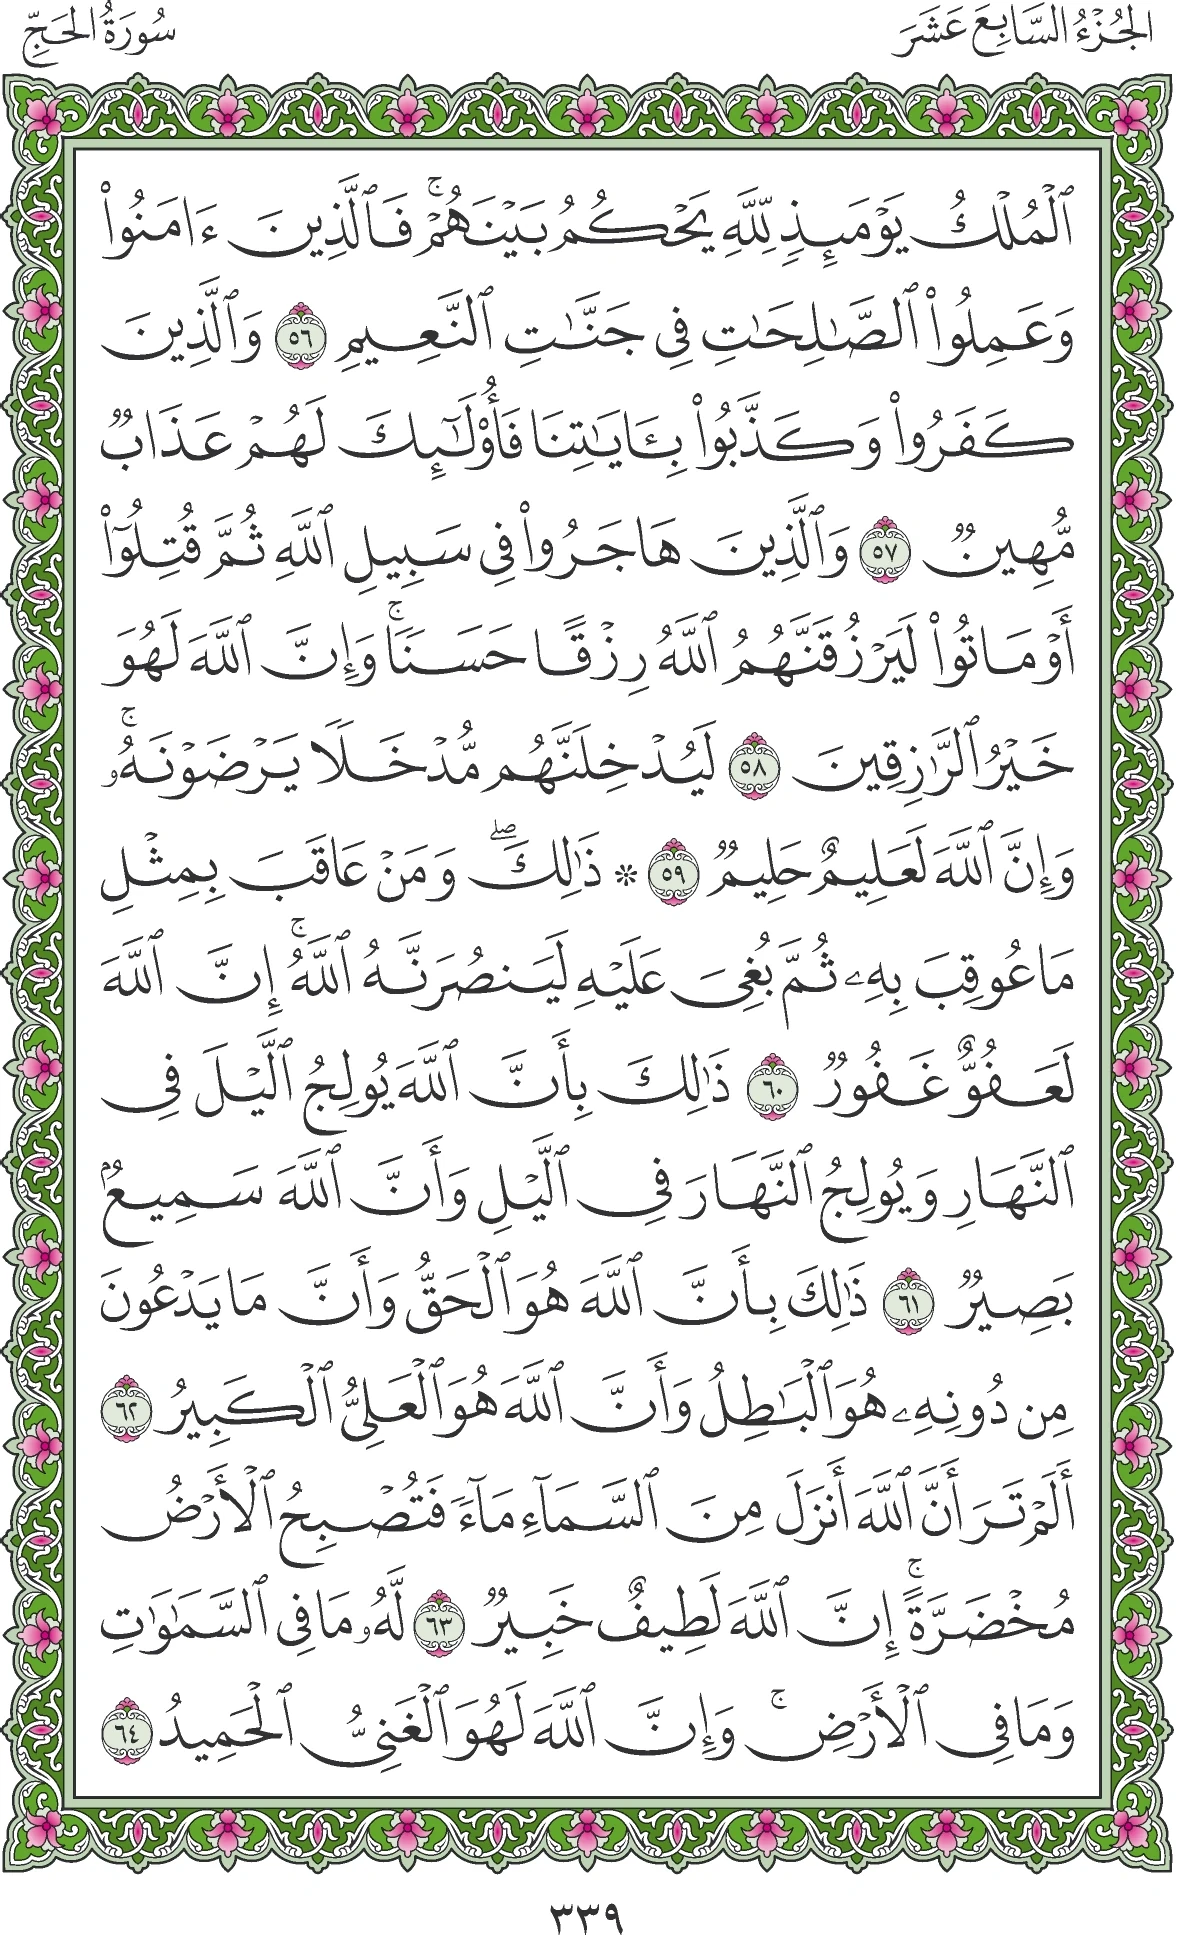 الجُزْءُ السَّابِعَ عَشَرَ
سُورَةُ الحَجِّ
ٱلْمُلْكُ يَوْمَئِذٍ لِّلَّهِ يَحْكُمُ بَيْنَهُمْۚ فَٱلَّذِينَ ءَامَنُوا۟
وَعَمِلُوا۟ ٱلصَّٰلِحَٰتِ فِى جَنَّٰتِ ٱلنَّعِيمِ ٥٦ وَٱلَّذِينَ
كَفَرُوا۟ وَكَذَّبُوا۟ بِـَٔايَٰتِنَا فَأُو۟لَٰٓئِكَ لَهُمْ عَذَابٌ
مُّهِينٌ ٥٧ وَٱلَّذِينَ هَاجَرُوا۟ فِى سَبِيلِ ٱللَّهِ ثُمَّ قُتِلُوٓا۟
أَوْ مَاتُوا۟ لَيَرْزُقَنَّهُمُ ٱللَّهُ رِزْقًا حَسَنًاۚ وَإِنَّ ٱللَّهَ لَهُوَ
خَيْرُ ٱلرَّٰزِقِينَ ٥٨ لَيُدْخِلَنَّهُم مُّدْخَلًا يَرْضَوْنَهُۥۚ
وَإِنَّ ٱللَّهَ لَعَلِيمٌ حَلِيمٌ ٥٩ ۞ ذَٰلِكَۖ وَمَنْ عَاقَبَ بِمِثْلِ
مَا عُوقِبَ بِهِۦ ثُمَّ بُغِىَ عَلَيْهِ لَيَنصُرَنَّهُ ٱللَّهُۚ إِنَّ ٱللَّهَ
لَعَفُوٌّ غَفُورٌ ٦٠ ذَٰلِكَ بِأَنَّ ٱللَّهَ يُولِجُ ٱلَّيْلَ فِى
ٱلنَّهَارِ وَيُولِجُ ٱلنَّهَارَ فِى ٱلَّيْلِ وَأَنَّ ٱللَّهَ سَمِيعٌۢ
بَصِيرٌ ٦١ ذَٰلِكَ بِأَنَّ ٱللَّهَ هُوَ ٱلْحَقُّ وَأَنَّ مَا يَدْعُونَ
مِن دُونِهِۦ هُوَ ٱلْبَٰطِلُ وَأَنَّ ٱللَّهَ هُوَ ٱلْعَلِىُّ ٱلْكَبِيرُ ٦٢
أَلَمْ تَرَ أَنَّ ٱللَّهَ أَنزَلَ مِنَ ٱلسَّمَآءِ مَآءً فَتُصْبِحُ ٱلْأَرْضُ
مُخْضَرَّةًۚ إِنَّ ٱللَّهَ لَطِيفٌ خَبِيرٌ ٦٣ لَّهُۥ مَا فِى ٱلسَّمَٰوَٰتِ
وَمَا فِى ٱلْأَرْضِۚ وَإِنَّ ٱللَّهَ لَهُوَ ٱلْغَنِىُّ ٱلْحَمِيدُ ٦٤
٣٣٩